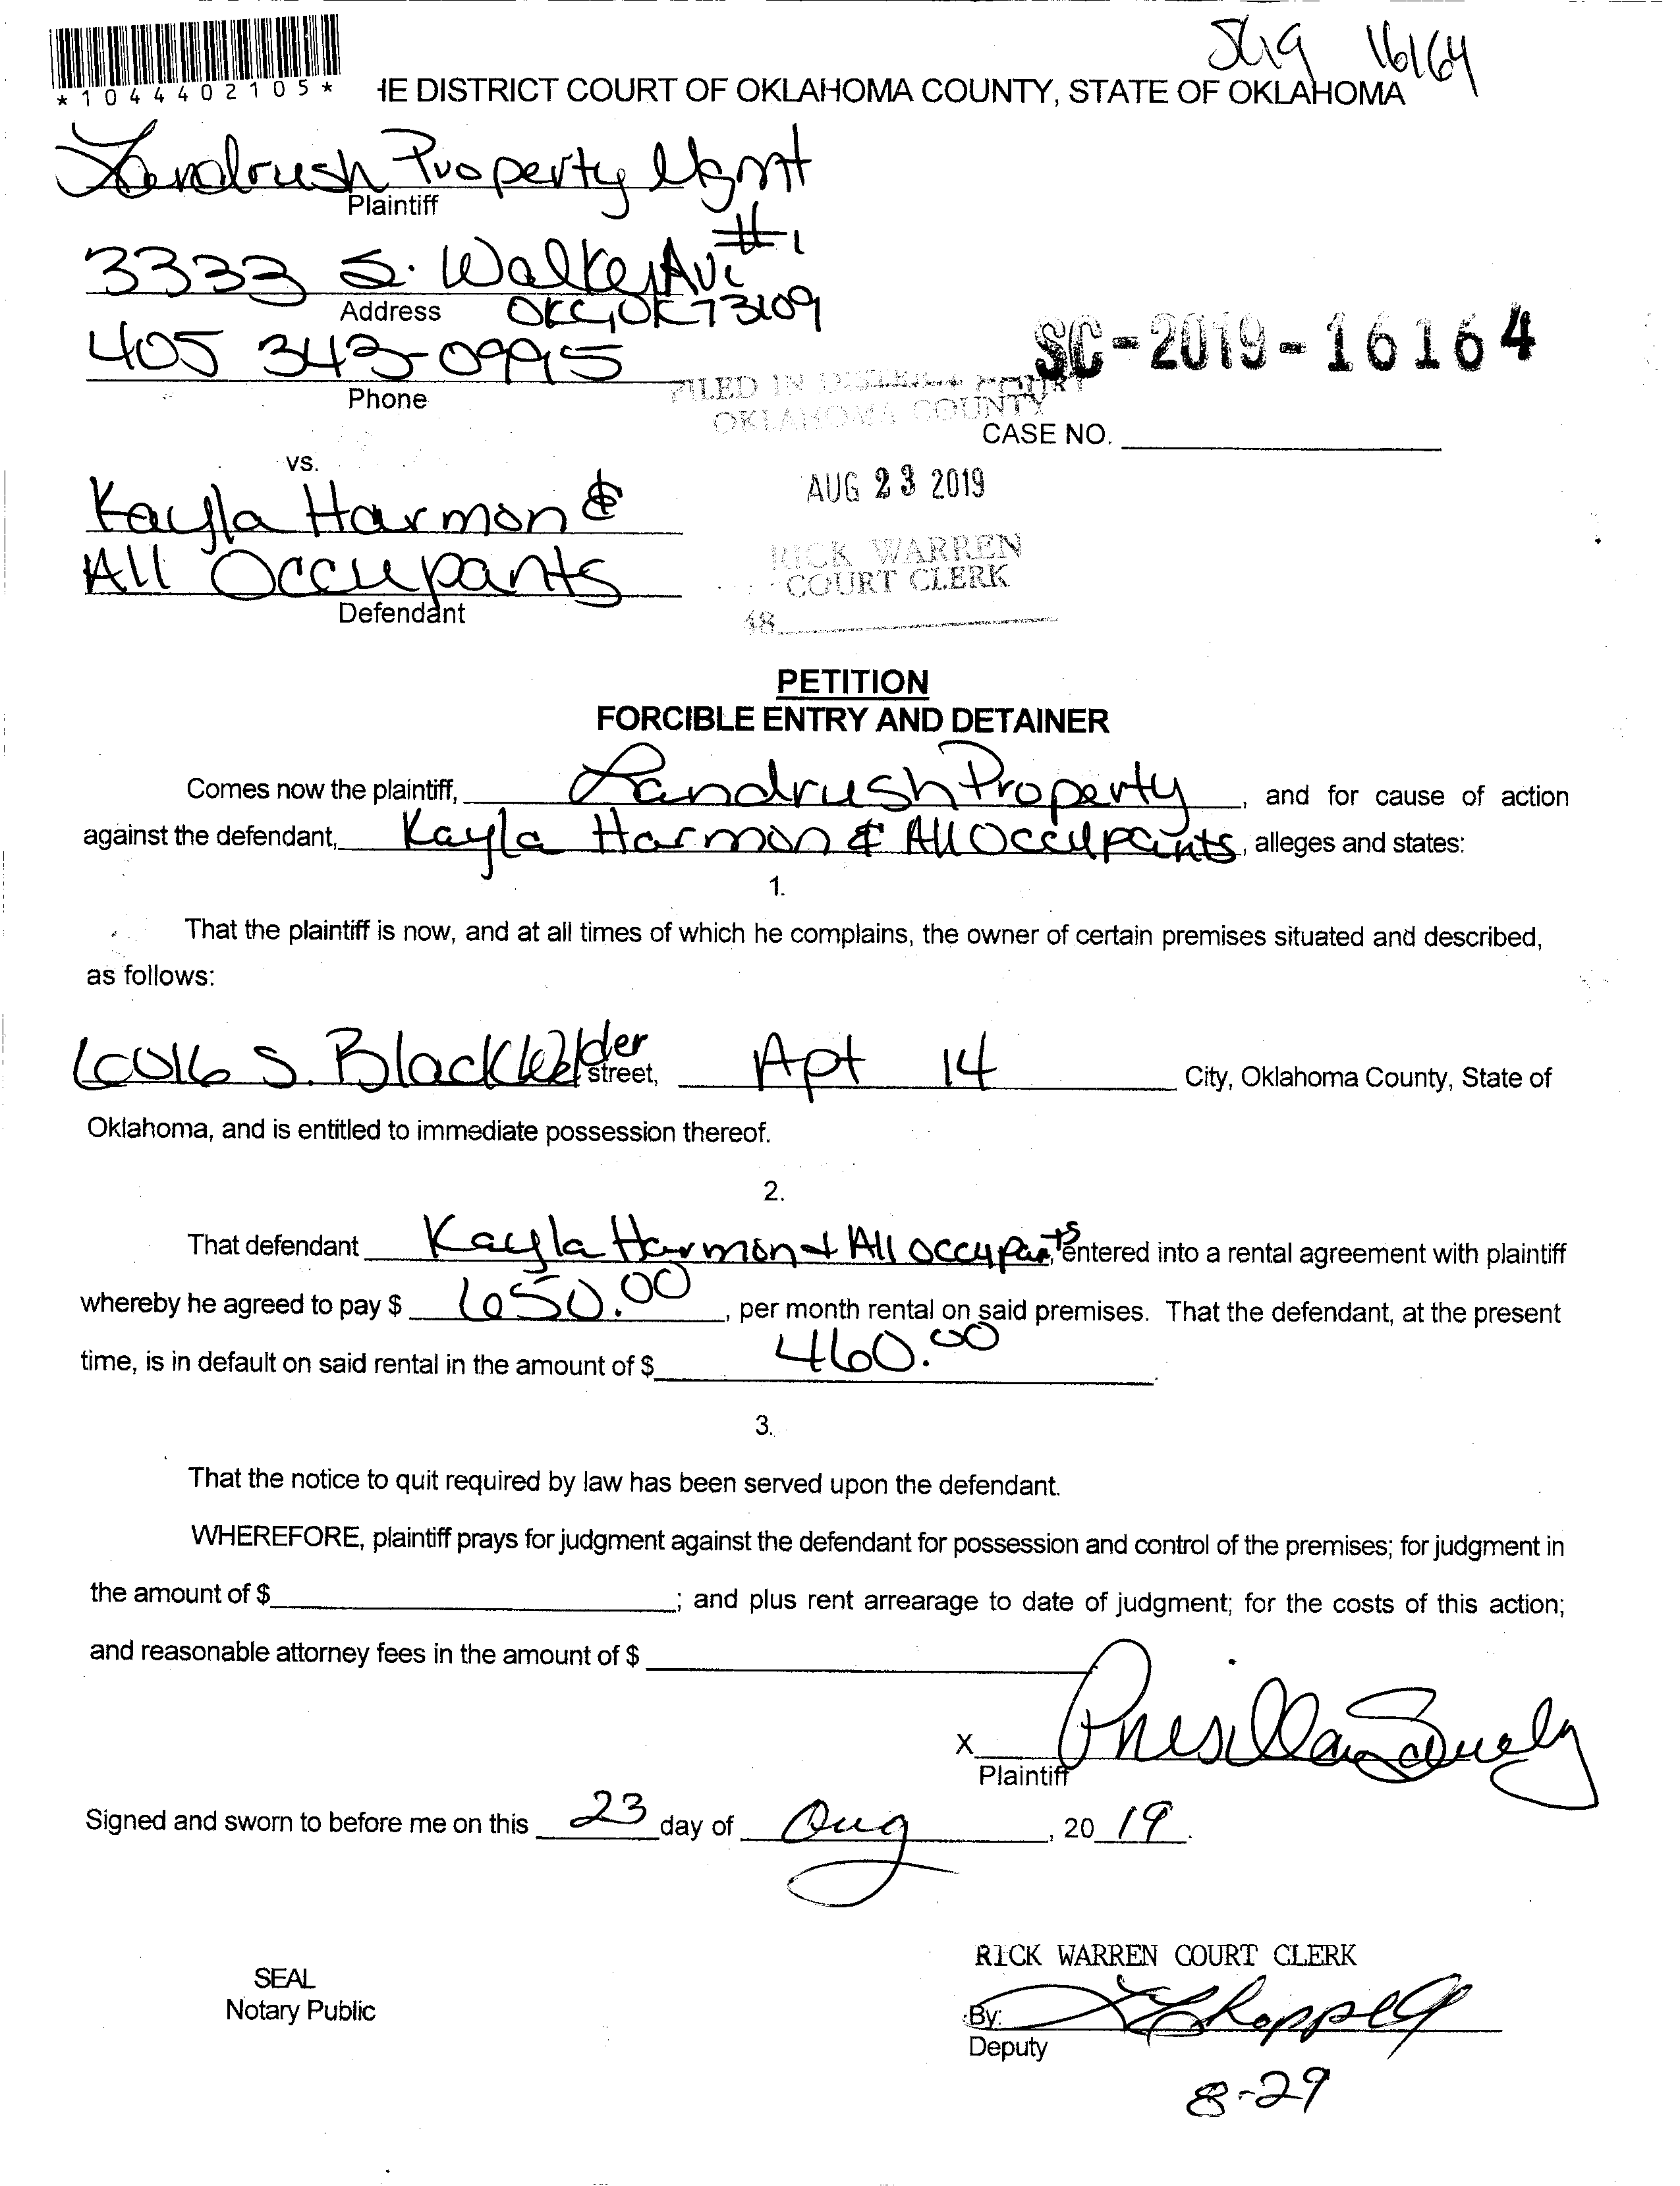 *1044402105*
16164
HE DISTRICT COURT OF OKLAHOMA COUNTY, STATE OF OKLAHOMA
Landrush Property Mgmt
Plaintiff
3333 S. Walker Ave #1
Address OKC, OK 73109
405 343-0995
Phone
SC-2019-16164
FILED IN DISTRICT COURT
OKLAHOMA COUNTY
CASE NO.
vs.
AUG 23 2019
Kayla Harmon &
All Occupants
Defendant
RICK WARREN
COURT CLERK
48
PETITION
FORCIBLE ENTRY AND DETAINER
Comes now the plaintiff, Landrush Property, and for cause of action
against the defendant, Kayla Harmon & All Occupants, alleges and states:
1.
That the plaintiff is now, and at all times of which he complains, the owner of certain premises situated and described,
as follows:
6016 S. Blackwelder street, Apt 14 City, Oklahoma County, State of
Oklahoma, and is entitled to immediate possession thereof.
2.
That defendant Kayla Harmon & All occupants, entered into a rental agreement with plaintiff
whereby he agreed to pay $ 650.00, per month rental on said premises. That the defendant, at the present
time, is in default on said rental in the amount of $ 460.00.
3.
That the notice to quit required by law has been served upon the defendant.
WHEREFORE, plaintiff prays for judgment against the defendant for possession and control of the premises; for judgment in
the amount of $ ; and plus rent arrearage to date of judgment; for the costs of this action;
and reasonable attorney fees in the amount of $
X
Plaintiff
Signed and sworn to before me on this 23 day of Aug, 20 19.
RICK WARREN COURT CLERK
SEAL
Notary Public
By:
Deputy
8-29